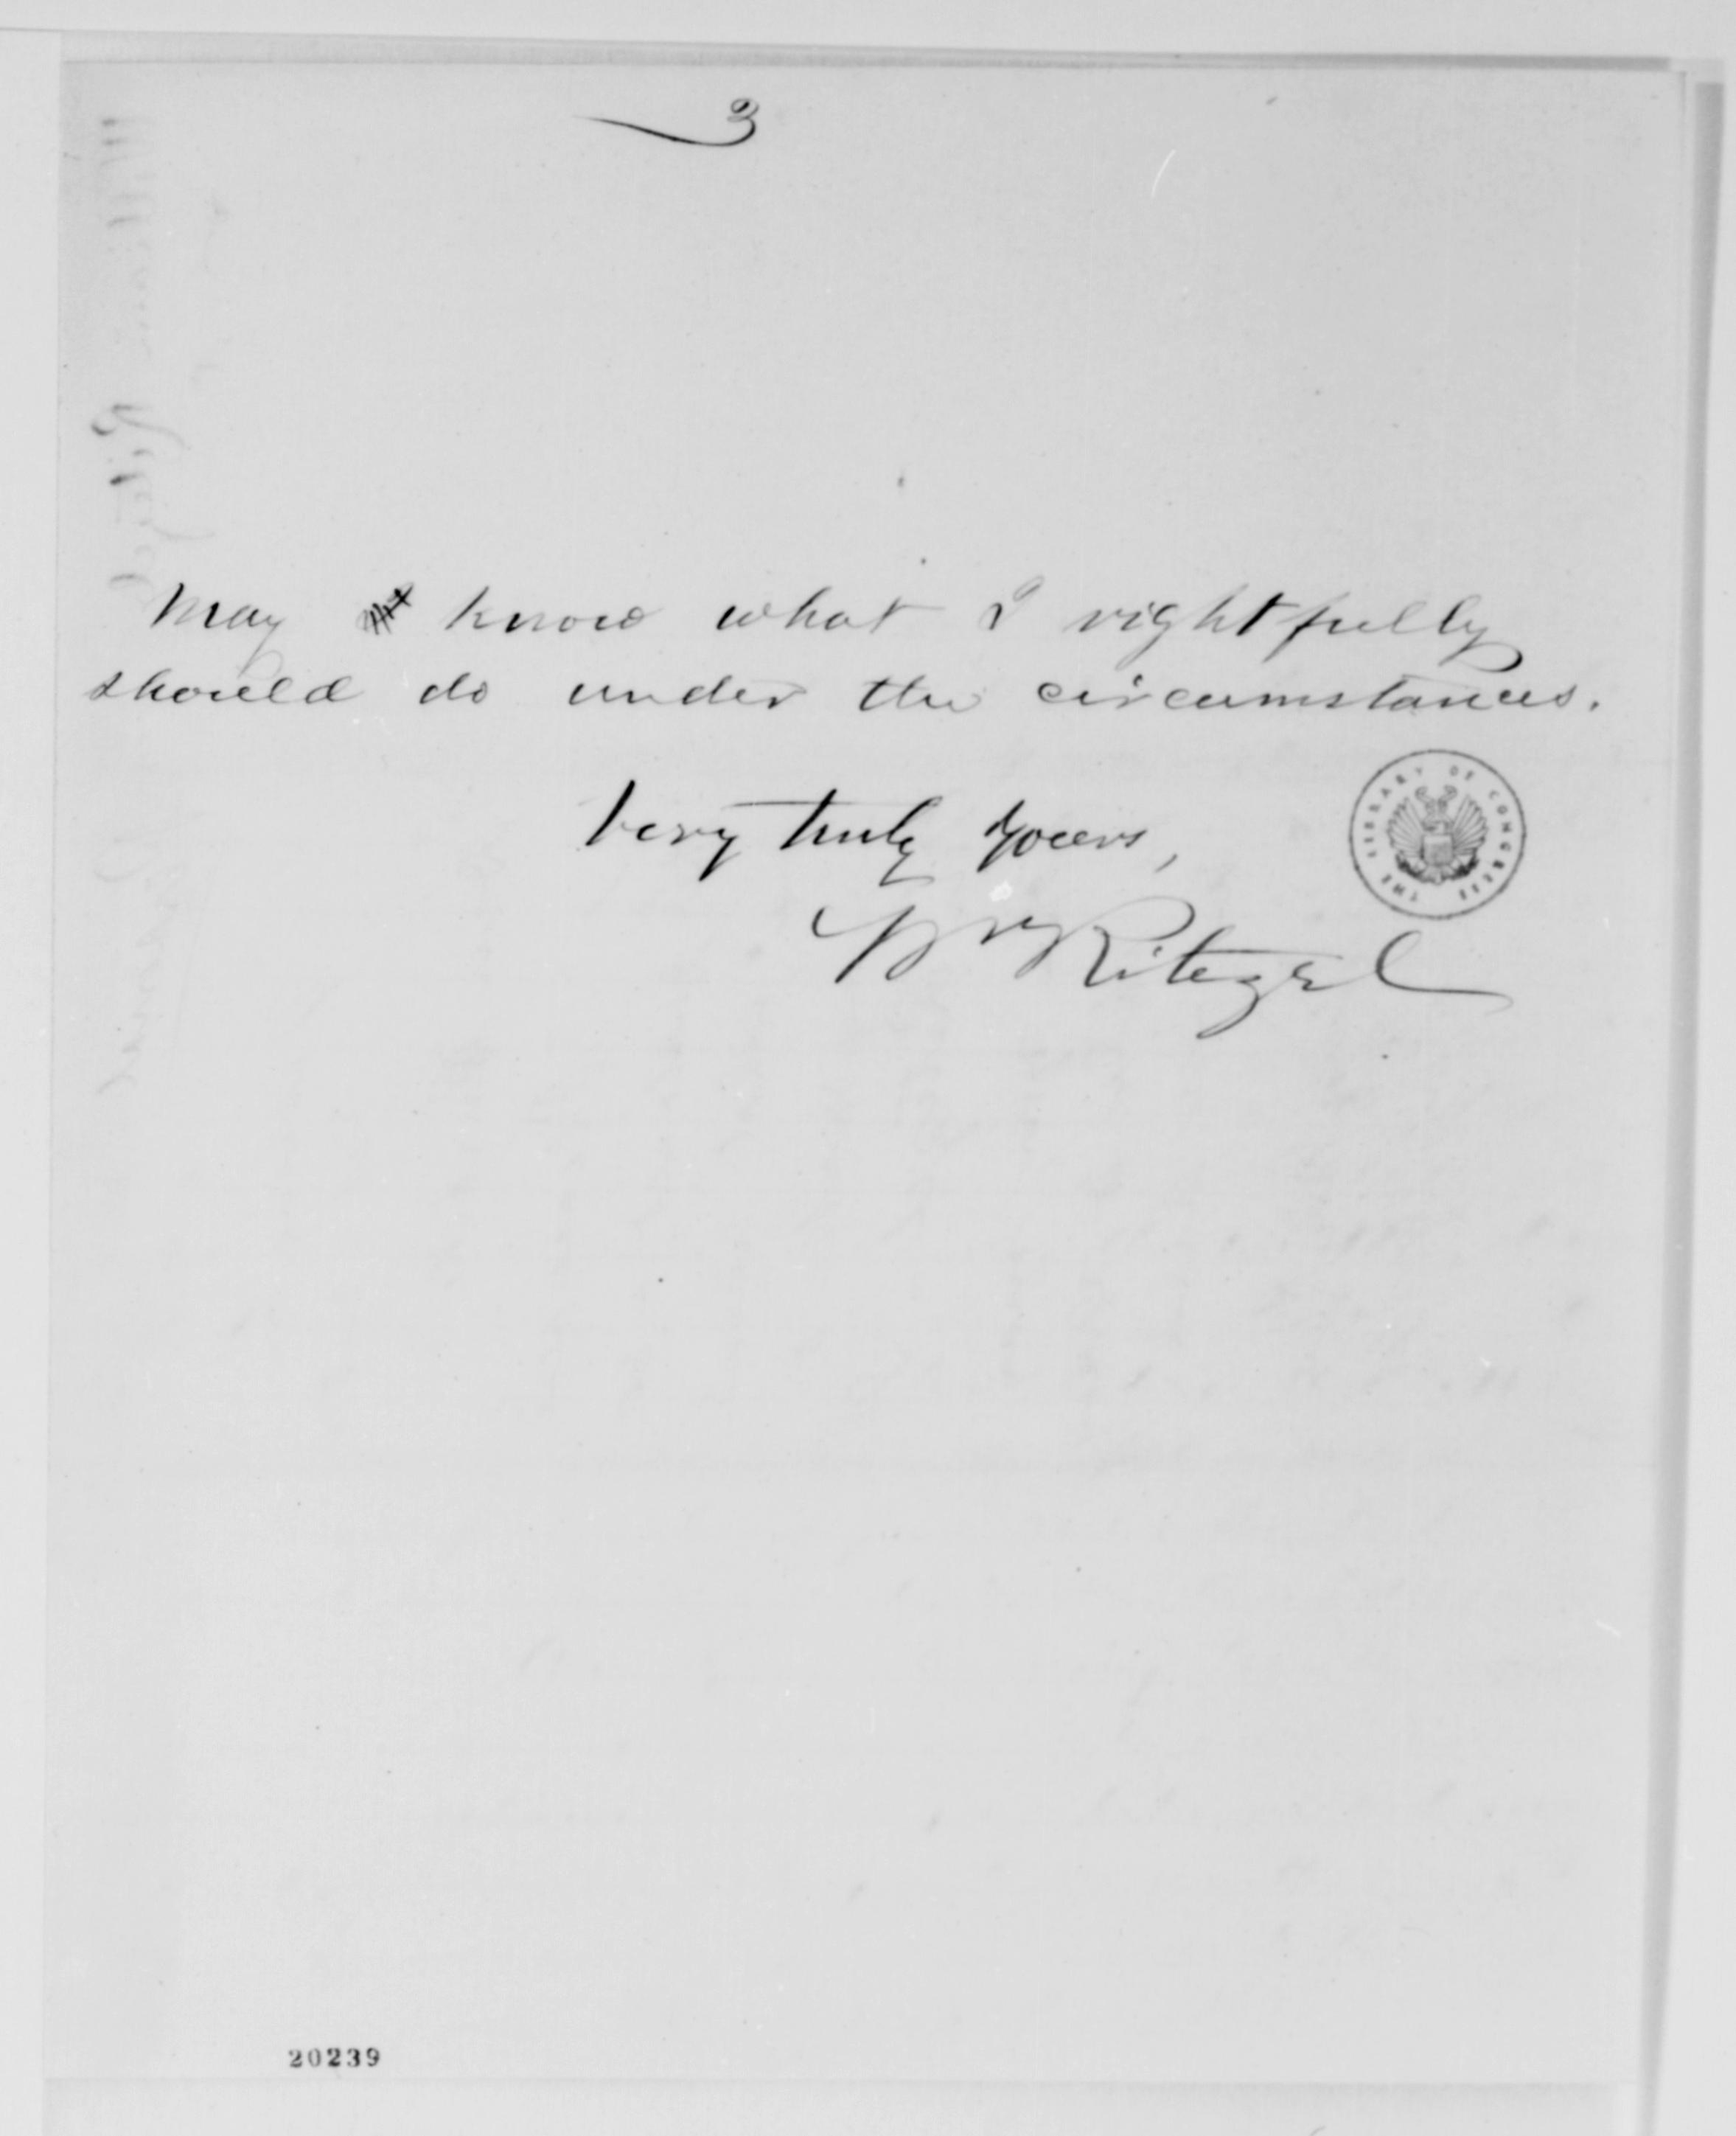 3
May know what I rightfully
should do under the circumstances.
Very truly yours,
Wm Ritezel
THE LIBRARY OF CONGRESS
20239